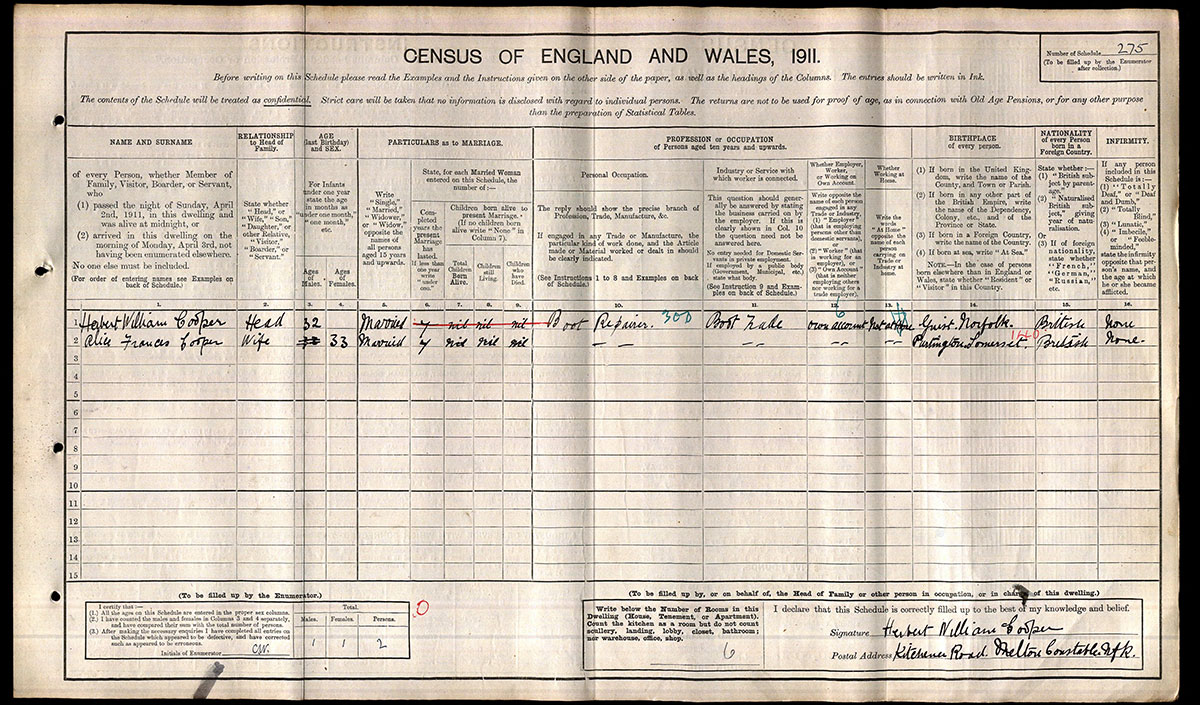 CENSUS OF ENGLAND AND WALES, 1911.
Number of Schedule 275
(To be filled up by the Enumerator
after collection.)
Before writing on this Schedule please read the Examples and the Instructions given on the other side of the paper, as well as the headings of the Columns. The entries should be written in Ink.
The contents of the Schedule will be treated as confidential. Strict care will be taken that no information is disclosed with regard to individual persons. The returns are not to be used for proof of age, as in connection with Old Age Pensions, or for any other purpose
than the preparation of Statistical Tables.
NAME AND SURNAME
of every Person, whether Member of
Family, Visitor, Boarder, or Servant,
who
(1) passed the night of Sunday, April
2nd, 1911, in this dwelling and
was alive at midnight, or
(2) arrived in this dwelling on the
morning of Monday, April 3rd, not
having been enumerated elsewhere.
No one else must be included.
(For order of entering names see Examples on
back of Schedule.)
1.
RELATIONSHIP
to Head of
Family.
State whether
"Head," or
"Wife," "Son,"
"Daughter," or
other Relative,
"Visitor,"
"Boarder," or
"Servant."
2.
AGE
(last Birthday)
and SEX.
For Infants
under one year
state the age
in months as
"under one month,"
"one month,"
etc.
Ages
of
Males.
3.
Ages
of
Females.
4.
PARTICULARS as to MARRIAGE.
Write
"Single,"
"Married,"
"Widower,"
or "Widow,"
opposite the
names of
all persons
aged 15 years
and upwards.
5.
State, for each Married Woman
entered on this Schedule, the
number of:—
Completed
years the
present
Marriage
has
lasted.
If less than
one year
write
"under
one."
6.
Children born alive to
present Marriage.
(If no children born
alive write "None" in
Column 7).
Total
Children
Born
Alive.
7.
Children
still
Living.
8.
Children
who
have
Died.
9.
PROFESSION or OCCUPATION
of Persons aged ten years and upwards.
Personal Occupation.
The reply should show the precise branch of
Profession, Trade, Manufacture, &c.
If engaged in any Trade or Manufacture, the
particular kind of work done, and the Article
made or Material worked or dealt in should
be clearly indicated.
(See Instructions 1 to 8 and Examples on back
of Schedule.)
10.
Industry or Service with
which worker is connected.
This question should generally
be answered by stating
the business carried on by
the employer. If this is
clearly shown in Col. 10
the question need not be
answered here.
No entry needed for Domestic Servants
in private employment.
If employed by a public body
(Government, Municipal, etc.)
state what body.
(See Instruction 9 and Examples
on back of Schedule.)
11.
Whether Employer,
Worker, or
Working on
Own Account.
Write opposite the
name of each person
engaged in any
Trade or Industry,
(1) "Employer"
(that is employing
persons other than
domestic servants),
or
(2) "Worker" (that
is working for an
employer), or
(3) "Own Account"
(that is neither
employing others nor
working for a
trade employer).
12.
Whether
Working at
Home.
Write the
words
"At Home"
opposite the
name of each
person
carrying on
Trade or
Industry at
home.
13.
BIRTHPLACE
of every person.
(1) If born in the United Kingdom,
write the name of the
County, and Town or Parish.
(2) If born in any other part of
the British Empire, write
the name of the Dependency,
Colony, etc., and of the
Province or State.
(3) If born in a Foreign Country,
write the name of the Country.
(4) If born at sea, write "At Sea."
NOTE.—In the case of persons
born elsewhere than in England or
Wales, state whether "Resident" or
"Visitor" in this Country.
14.
NATIONALITY
of every Person
born in a
Foreign Country.
State whether:—
(1) "British
subject by parentage,"
(2) "Naturalised
British subject,"
giving
year of naturalisation.
Or
(3) If of foreign
nationality
state whether
"French,"
"German,"
"Russian,"
etc.
15.
INFIRMITY.
If any person
included in this
Schedule is:—
(1) "Totally
Deaf," or "Deaf
and Dumb,"
(2) "Totally
Blind,"
(3) "Lunatic,"
(4) "Imbecile,"
or "Feeble-minded,"
state the infirmity
opposite that person's
name, and
the age at which
he or she became
afflicted.
16.
1 Herbert William Cooper Head 32 Married 7 nil nil nil Boot Repairer. 300 Boot Trade 6 own account Not at home Guist Norfolk. British None
2 Alice Frances Cooper Wife 33 Married 7 nil nil nil — — — — — — Somerset. British None.
3
4
5
6
7
8
9
10
11
12
13
14
15
(To be filled up by the Enumerator.)
I certify that:—
(1.) All the ages on this Schedule are entered in the proper sex columns.
(2.) I have counted the males and females in Columns 3 and 4 separately,
and have compared their sum with the total number of persons.
(3.) After making the necessary enquiries I have completed all entries on
the Schedule which appeared to be defective, and have corrected
such as appeared to be erroneous.
Initials of Enumerator CW.
Total.
Males. Females. Persons.
1 1 2
0
(To be filled up by, or on behalf of, the Head of Family or other person in occupation, or in charge of this dwelling.)
Write below the Number of Rooms in this
Dwelling (House, Tenement, or Apartment).
Count the kitchen as a room but do not count
scullery, landing, lobby, closet, bathroom;
nor warehouse, office, shop.
6
I declare that this Schedule is correctly filled up to the best of my knowledge and belief.
Signature Herbert William Cooper
Postal Address Kitchener Road Melton Constable. Nfk.